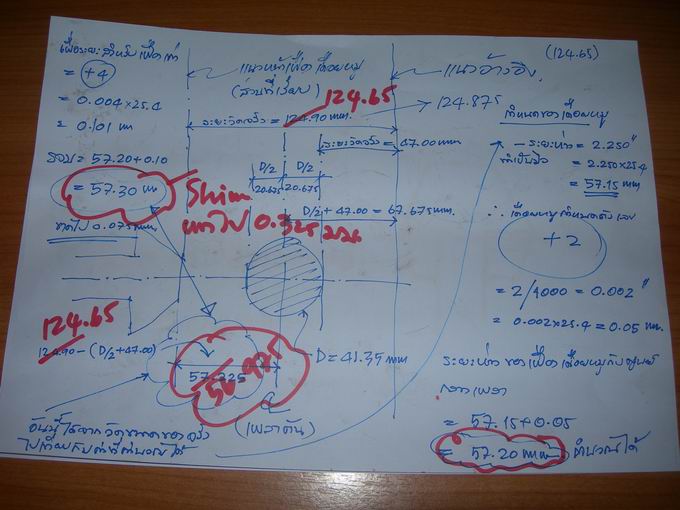 เผื่อระยะสำหรับเฟืองดำ
= +4
= 0.004x25.4
= 0.101 mm
รวม = 57.20+0.10
= 57.30 m
ขาดไป 0.075 mm
แนวหน้าเฟืองเดือยหมู
(สวมที่เรียบ)
124.65
ระยะวัดจริง = 124.90 mm.
124.875
ระยะวัดจริง = 47.00 mm
D/2 D/2
20.675 20.675
D/2 + 47.00 = 67.675 mm.
Shim
หายไป 0.325 มม.
124.65
124.90 - (D/2+47.00)
57.225
D = 41.35 mm
(เพลาตัน)
อันนี้ได้จากวัดขนาดของจริง
แนวอ้างอิง
(124.65)
กำหนดของเดือยหมู
- ระยะห่าง = 2.250"
ทำเป็นมิล = 2.250x25.4
= 57.15 mm
∴ เดือยหมูกำหนดตัวเลข
+2
= 2/1000 = 0.002"
= 0.002x25.4 = 0.05 mm.
ระยะห่างของเฟืองเดือยหมูกับศูนย์
กลางเพลา
= 57.15+0.05
= 57.20 mm. คำนวณได้